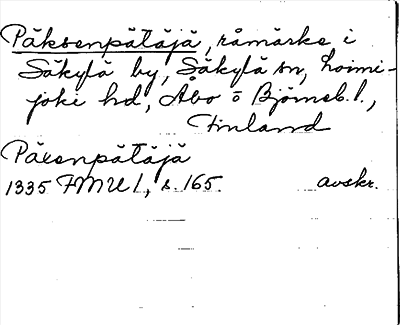 Päksenpätäjä, råmärke i
Säkylä by, Säkylä sn, Loimi-
joki hd, Åbo o Björneb. l.,
Finland
Päxenpätäjä
1335 FMU 1, s. 165. avskr.